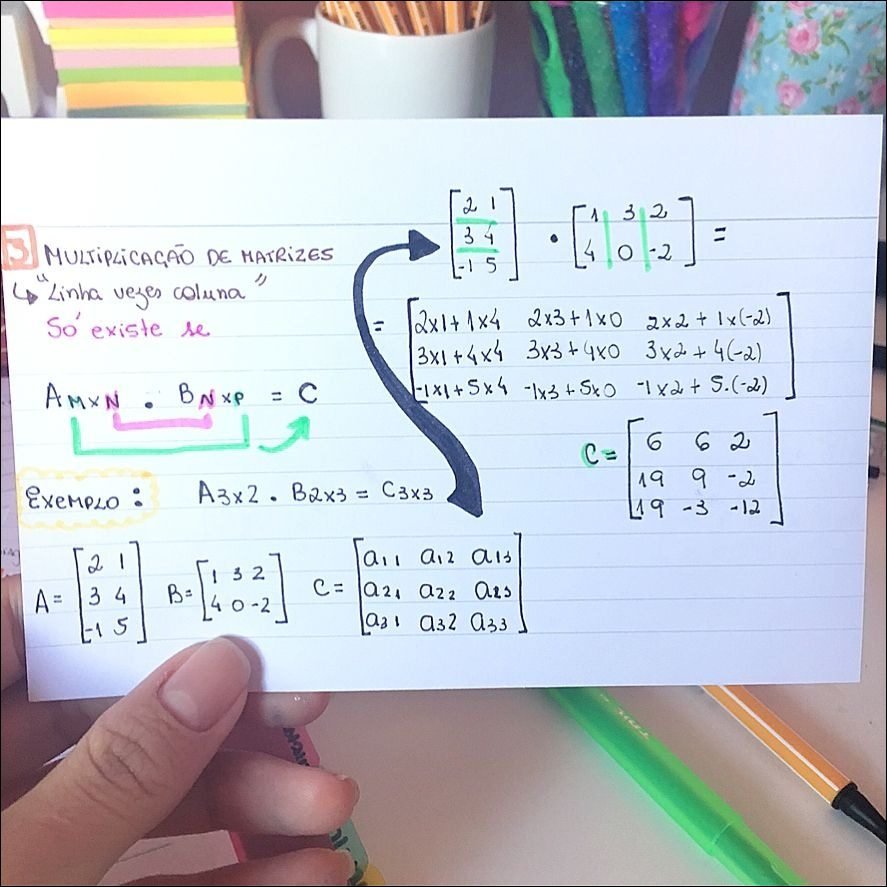 3 MULTIPLICAÇÃO DE MATRIZES
↳ "Linha vezes coluna"
Só existe se
A M×N . B N×P = C
EXEMPLO: A3×2 . B2×3 = C3×3
A = [2 1
3 4
-1 5]
B = [1 3 2
4 0 -2]
C = [a11 a12 a13
a21 a22 a23
a31 a32 a33]
[2 1
3 4
-1 5] • [1 3 2
4 0 -2] =
= [2×1+1×4 2×3+1×0 2×2+1×(-2)
3×1+4×4 3×3+4×0 3×2+4(-2)
-1×1+5×4 -1×3+5×0 -1×2+5.(-2)]
C = [6 6 2
19 9 -2
19 -3 -12]